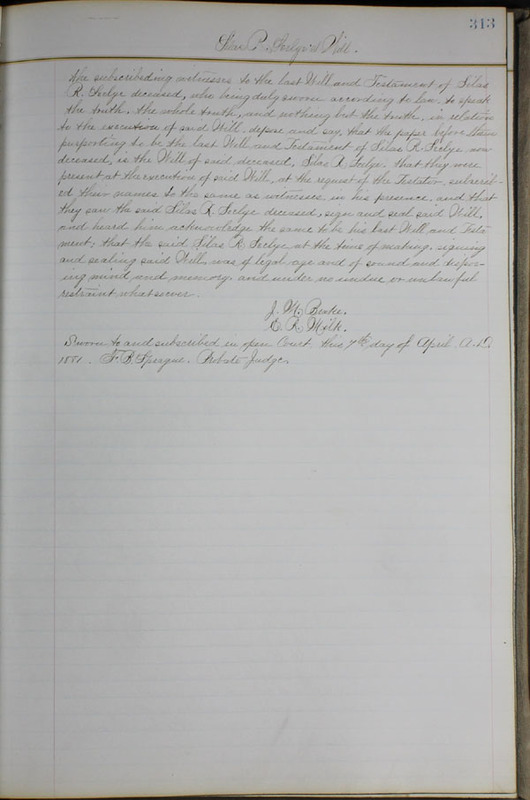 313
Silas R. Seelye's Will.
the subscribeding witnesses to the last Will and Testament of Silas
R. Seelye deceased, who being duly sworn according to law, to speak
the truth, the whole truth, and nothing but the truth, in relation
to the execution of said Will, depose and say, that the paper before them
purporting to be the last Will and Testament of Silas R. Seelye now
deceased, is the Will of said deceased, Silas R. Seelye, that they were
present at the execution of said Will, at the request of the Testator, subscrib-
ed their names to the same as witnesses, in his presence, and that
they saw the said Silas R. Seelye deceased, sign and seal said Will,
and heard him acknowledge the same to be his last Will and Testa-
ment; that the said Silas R. Seelye at the time of making, signing
and sealing said Will, was of legal age and of sound and dispos-
ing mind and memory, and under no undue or unlawful
restraint whatsoever.
J. M.
E. R. Milk.
Sworn to and subscribed in open Court, this 7th day of April A.D.
1881. F. B. Sprague. Probate Judge.